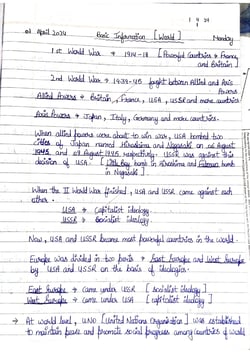 1 4 24
01 April 2024 Basic Information [World] Monday
1st World War → 1914-18 [Powerful Countries → France, and Britain]
2nd World War → 1939-45 fought between Allied and Axis Powers
Allied Powers → Britain, France, USA, USSR and more countries.
Axis Powers → Japan, Italy, Germany and more countries.
When allied powers were about to win war, USA bombed two
cities of Japan named Hiroshima and Nagasaki on 06 August
1945 and 09 August 1945 respectively. USSR was against this
decision of USA. [Little Boy bomb in Hiroshima and Fatman bomb
in Nagasaki].
When the II World War finished, USA and USSR came against each
other.
USA → Capitalist ideology
USSR → Socialist ideology
Now, USA and USSR became most powerful countries in the world.
Europe was divided in two parts → East Europe and West Europe
by USA and USSR on the basis of ideologies.
East Europe → came under USSR [Socialist ideology]
West Europe → came under USA [capitalist ideology]
→ At world level, UNO [United Nations Organisation] was established
to maintain peace and promote social progress among countries of world